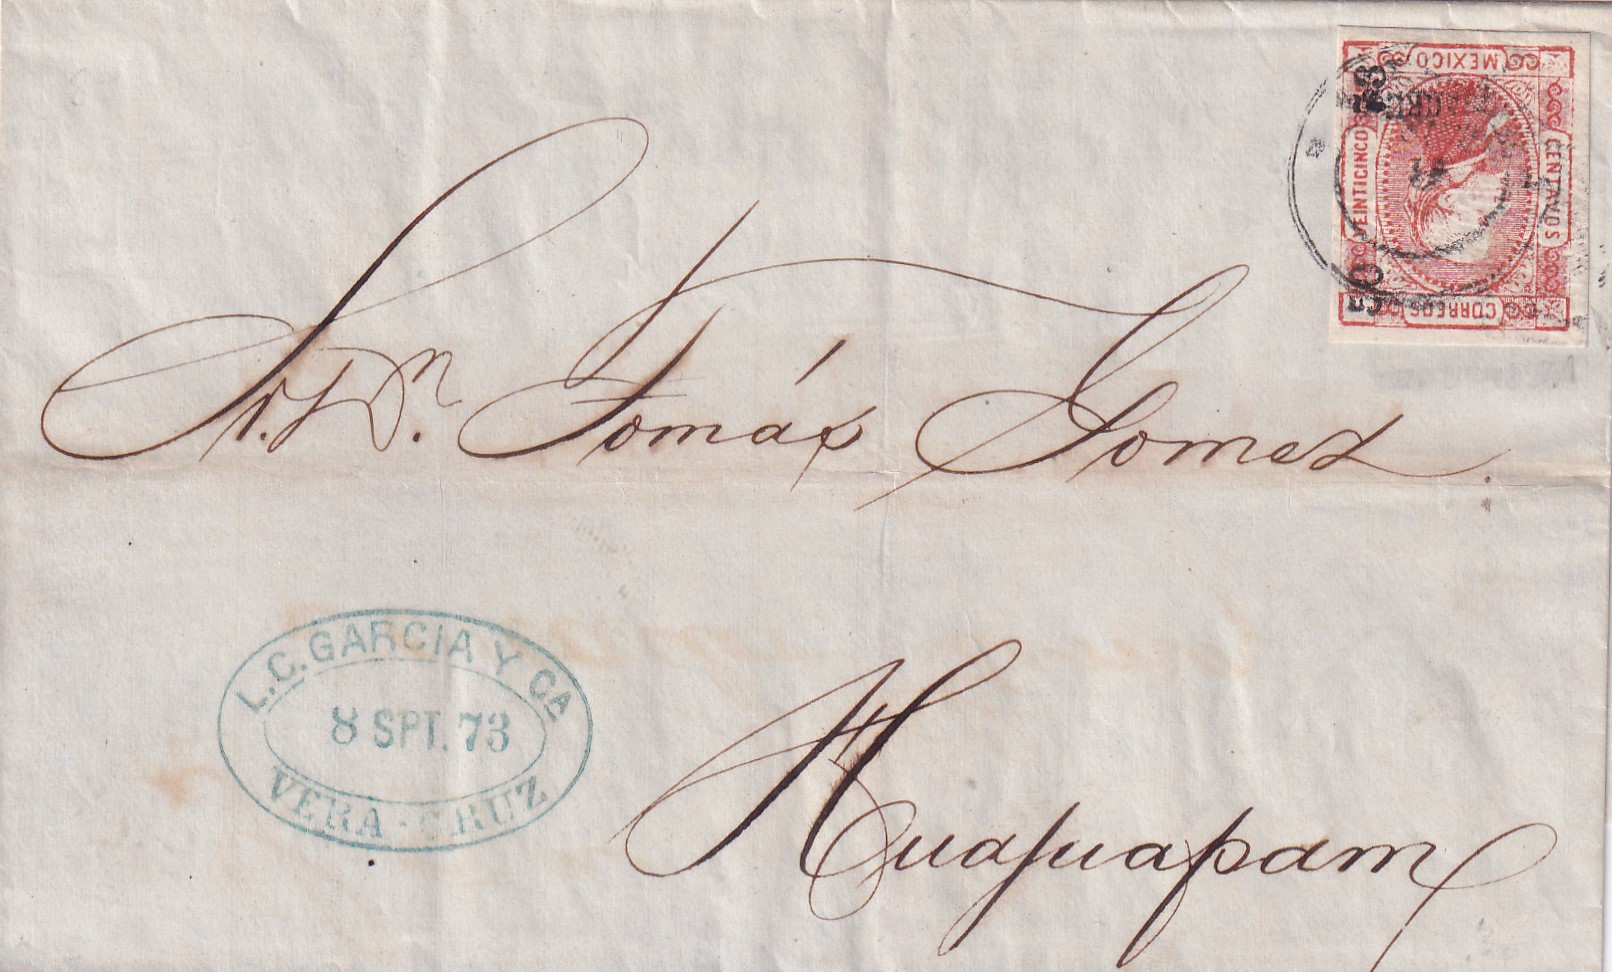 MEXICO
VEINTICINCO
CENTAVOS
CORREOS
Sr. Dn. Tomás Gomez
L.C. GARCIA Y CA
8 SPT. 73
VERA-CRUZ
Huajuapam